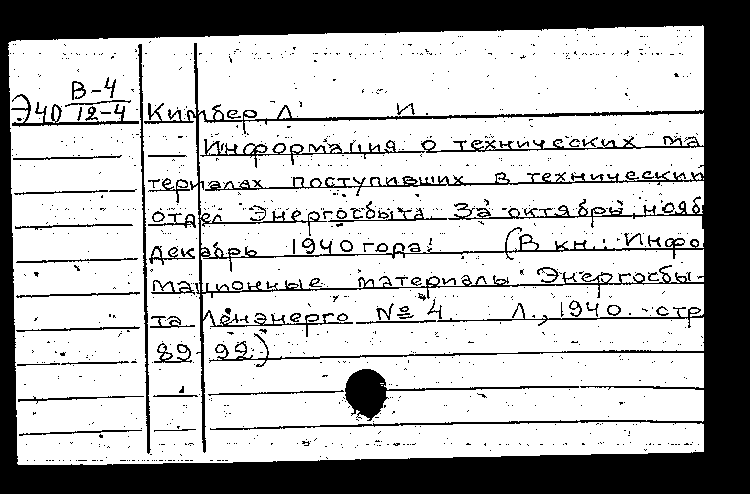 В-4
Э40 12-4 Кимбер, Л. И.
Информация о технических ма
териалах поступивших в технический
отдел Энергосбыта за октябрь, нояб
декабрь 1940 года. (В кн.: Инфо
мационные материалы Энергосбы-
та Ленэнерго № 4. Л., 1940. стр
89-92)